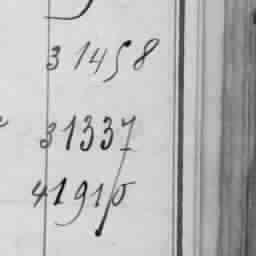 31458
31337
41915